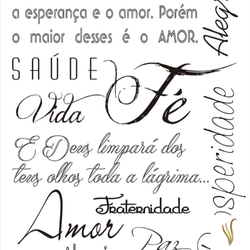 a esperança e o amor. Porém
o maior desses é o AMOR.
SAÚDE
Fé
Vida
E Deus limpará dos
teus olhos toda a lágrima...
Fraternidade
Amor
Paz